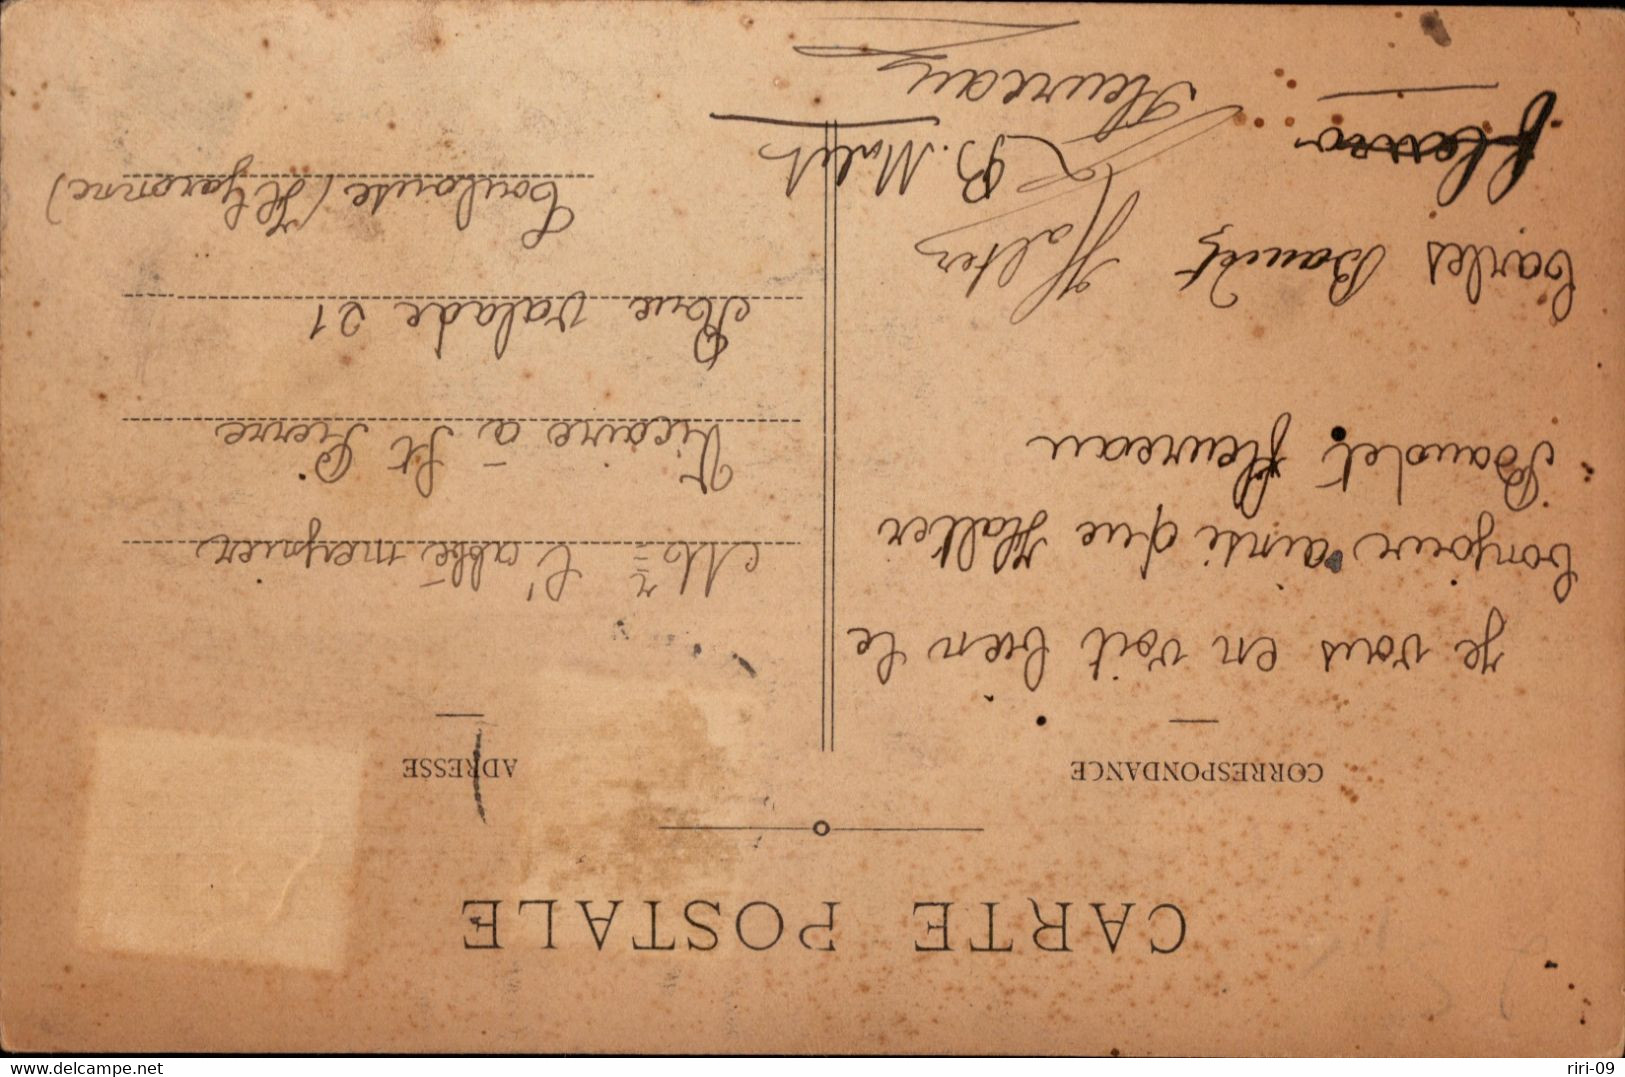 CARTE POSTALE
CORRESPONDANCE
je vous en voit bien le
bonjour ainsi que Halter
Baudet fleureau
Carles Baudet Halter
fleuro
B. Malet
Fleureau
ADRESSE
Mr l'abbé meynier
Vicaire à St Pierre
Rue Valade 21
Toulouse (Hte garonne)
www.delcampe.net
riri-09